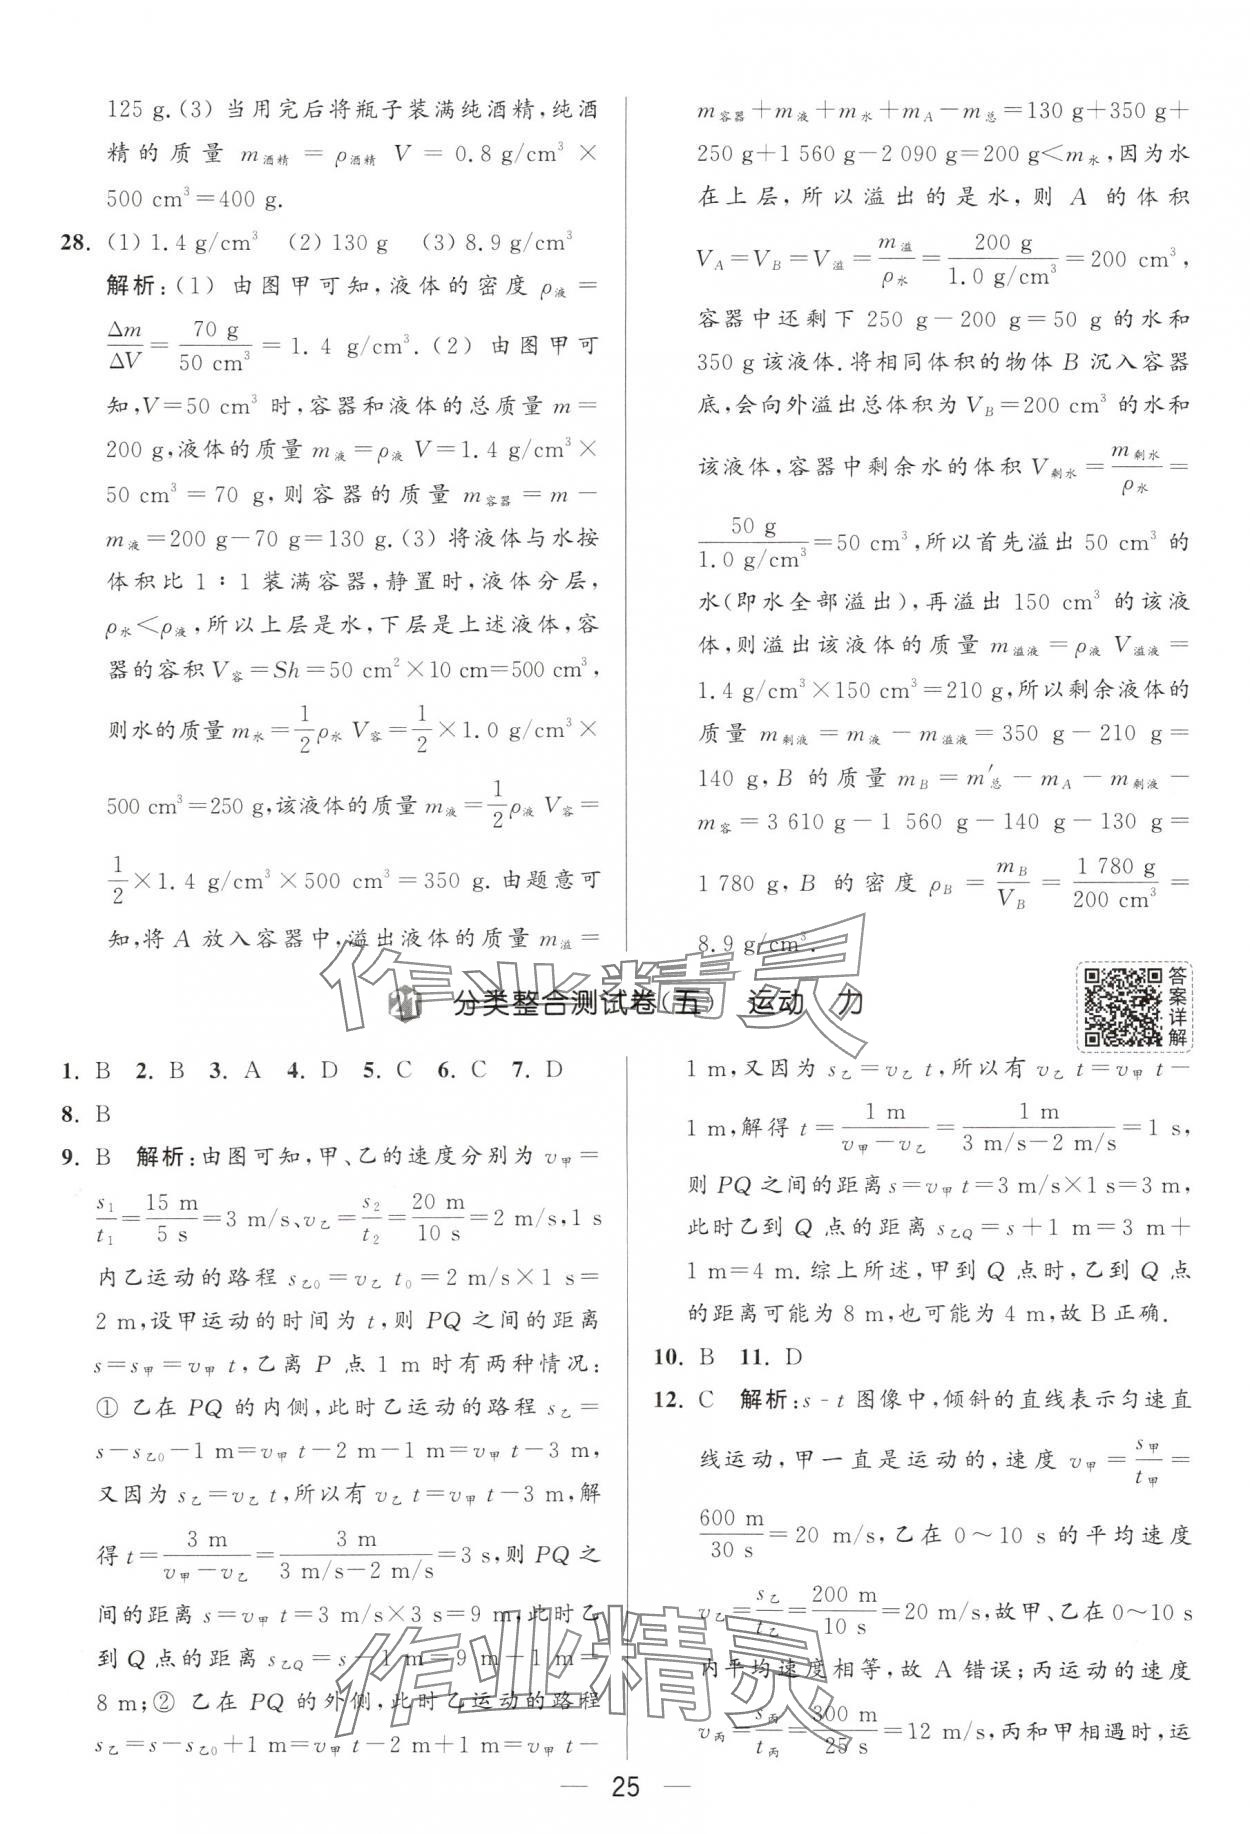 125 g.(3) 当用完后将瓶子装满纯酒精,纯酒
精的质量 m酒精 = ρ酒精 V = 0.8 g/cm³ ×
500 cm³=400 g.
28. (1) 1.4 g/cm³ (2) 130 g (3) 8.9 g/cm³
解析:(1) 由图甲可知,液体的密度 ρ液 =
Δm/ΔV = 70 g/50 cm³ = 1.4 g/cm³.(2) 由图甲可
知,V=50 cm³ 时,容器和液体的总质量 m=
200 g,液体的质量 m液=ρ液 V=1.4 g/cm³×
50 cm³=70 g,则容器的质量 m容器=m-
m液=200 g-70 g=130 g.(3) 将液体与水按
体积比 1∶1 装满容器,静置时,液体分层,
ρ水<ρ液,所以上层是水,下层是上述液体,容
器的容积 V容=Sh=50 cm²×10 cm=500 cm³,
则水的质量 m水=1/2 ρ水 V容=1/2×1.0 g/cm³×
500 cm³=250 g,该液体的质量 m液=1/2 ρ液 V容=
1/2×1.4 g/cm³×500 cm³=350 g.由题意可
知,将 A 放入容器中,溢出液体的质量 m溢=
m容器+m液+m水+mA-m总=130 g+350 g+
250 g+1 560 g-2 090 g=200 g<m水,因为水
在上层,所以溢出的是水,则 A 的体积
VA=VB=V溢=m溢/ρ水=200 g/1.0 g/cm³=200 cm³,
容器中还剩下 250 g-200 g=50 g 的水和
350 g 该液体.将相同体积的物体 B 沉入容器
底,会向外溢出总体积为 VB=200 cm³ 的水和
该液体,容器中剩余水的体积 V剩水=m剩水/ρ水=
50 g/1.0 g/cm³=50 cm³,所以首先溢出 50 cm³ 的
水(即水全部溢出),再溢出 150 cm³ 的该液
体,则溢出该液体的质量 m溢液=ρ液 V溢液=
1.4 g/cm³×150 cm³=210 g,所以剩余液体的
质量 m剩液=m液-m溢液=350 g-210 g=
140 g,B 的质量 mB=m′总-mA-m剩液-
m容=3 610 g-1 560 g-140 g-130 g=
1 780 g,B 的密度 ρB=mB/VB=1 780 g/200 cm³=
8.9 g/cm³.
作业精灵
21 分类整合测试卷(五) 运动 力
答案详解
1. B 2. B 3. A 4. D 5. C 6. C 7. D
8. B
9. B 解析:由图可知,甲、乙的速度分别为 v甲=
s₁/t₁=15 m/5 s=3 m/s、v乙=s₂/t₂=20 m/10 s=2 m/s,1 s
内乙运动的路程 s乙0=v乙 t₀=2 m/s×1 s=
2 m,设甲运动的时间为 t,则 PQ 之间的距离
s=s甲=v甲 t,乙离 P 点 1 m 时有两种情况:
① 乙在 PQ 的内侧,此时乙运动的路程 s乙=
s-s乙0-1 m=v甲 t-2 m-1 m=v甲 t-3 m,
又因为 s乙=v乙 t,所以有 v乙 t=v甲 t-3 m,解
得 t=3 m/(v甲-v乙)=3 m/(3 m/s-2 m/s)=3 s,则 PQ 之
间的距离 s=v甲 t=3 m/s×3 s=9 m,此时乙
到 Q 点的距离 s乙Q=s-1 m=9 m-1 m=
8 m;② 乙在 PQ 的外侧,此时乙运动的路程
s乙=s-s乙0+1 m=v甲 t-2 m+1 m=v甲 t-
1 m,又因为 s乙=v乙 t,所以有 v乙 t=v甲 t-
1 m,解得 t=1 m/(v甲-v乙)=1 m/(3 m/s-2 m/s)=1 s,
则 PQ 之间的距离 s=v甲 t=3 m/s×1 s=3 m,
此时乙到 Q 点的距离 s乙Q=s+1 m=3 m+
1 m=4 m.综上所述,甲到 Q 点时,乙到 Q 点
的距离可能为 8 m,也可能为 4 m,故 B 正确.
10. B 11. D
12. C 解析:s-t 图像中,倾斜的直线表示匀速直
线运动,甲一直是运动的,速度 v甲=s甲/t甲=
600 m/30 s=20 m/s,乙在 0～10 s 的平均速度
v乙=s乙/t乙=200 m/10 s=20 m/s,故甲、乙在 0～10 s
内平均速度相等,故 A 错误;丙运动的速度
v丙=s丙/t丙=300 m/25 s=12 m/s,丙和甲相遇时,运
作业精灵
— 25 —